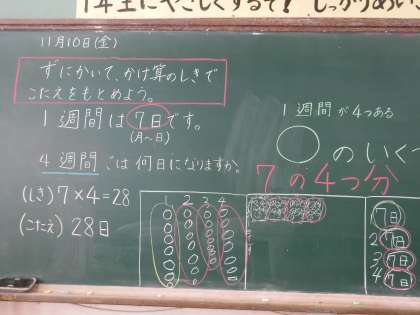 1年生にやさしくするぞ!
11月10日(金)
ずにかいて、かけ算のしきで
こたえをもとめよう。
1週間は7日です。
(月〜日)
4週間では何日になりますか。
(しき) 7×4=28
(こたえ) 28日
1週間が4つある
○のいくつ
7の4つ分
1 2 3 4
7日
2 7日
3 7日
4 7日